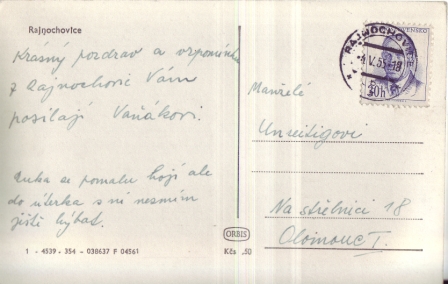 Rajnochovice
Krásný pozdrav a vzpomínku
z Rajnochovic Vám
posílají Vaňákovi.
Ruka se pomalu hojí ale
do úterka s ní nesmím
ještě hýbat.
1 - 4539 - 354 - 038637 F 04561
ORBIS
Kčs .50
RAJNOCHOVICE
Manželé
Unzeitigovi
Na střelnici 18
Olomouc I.